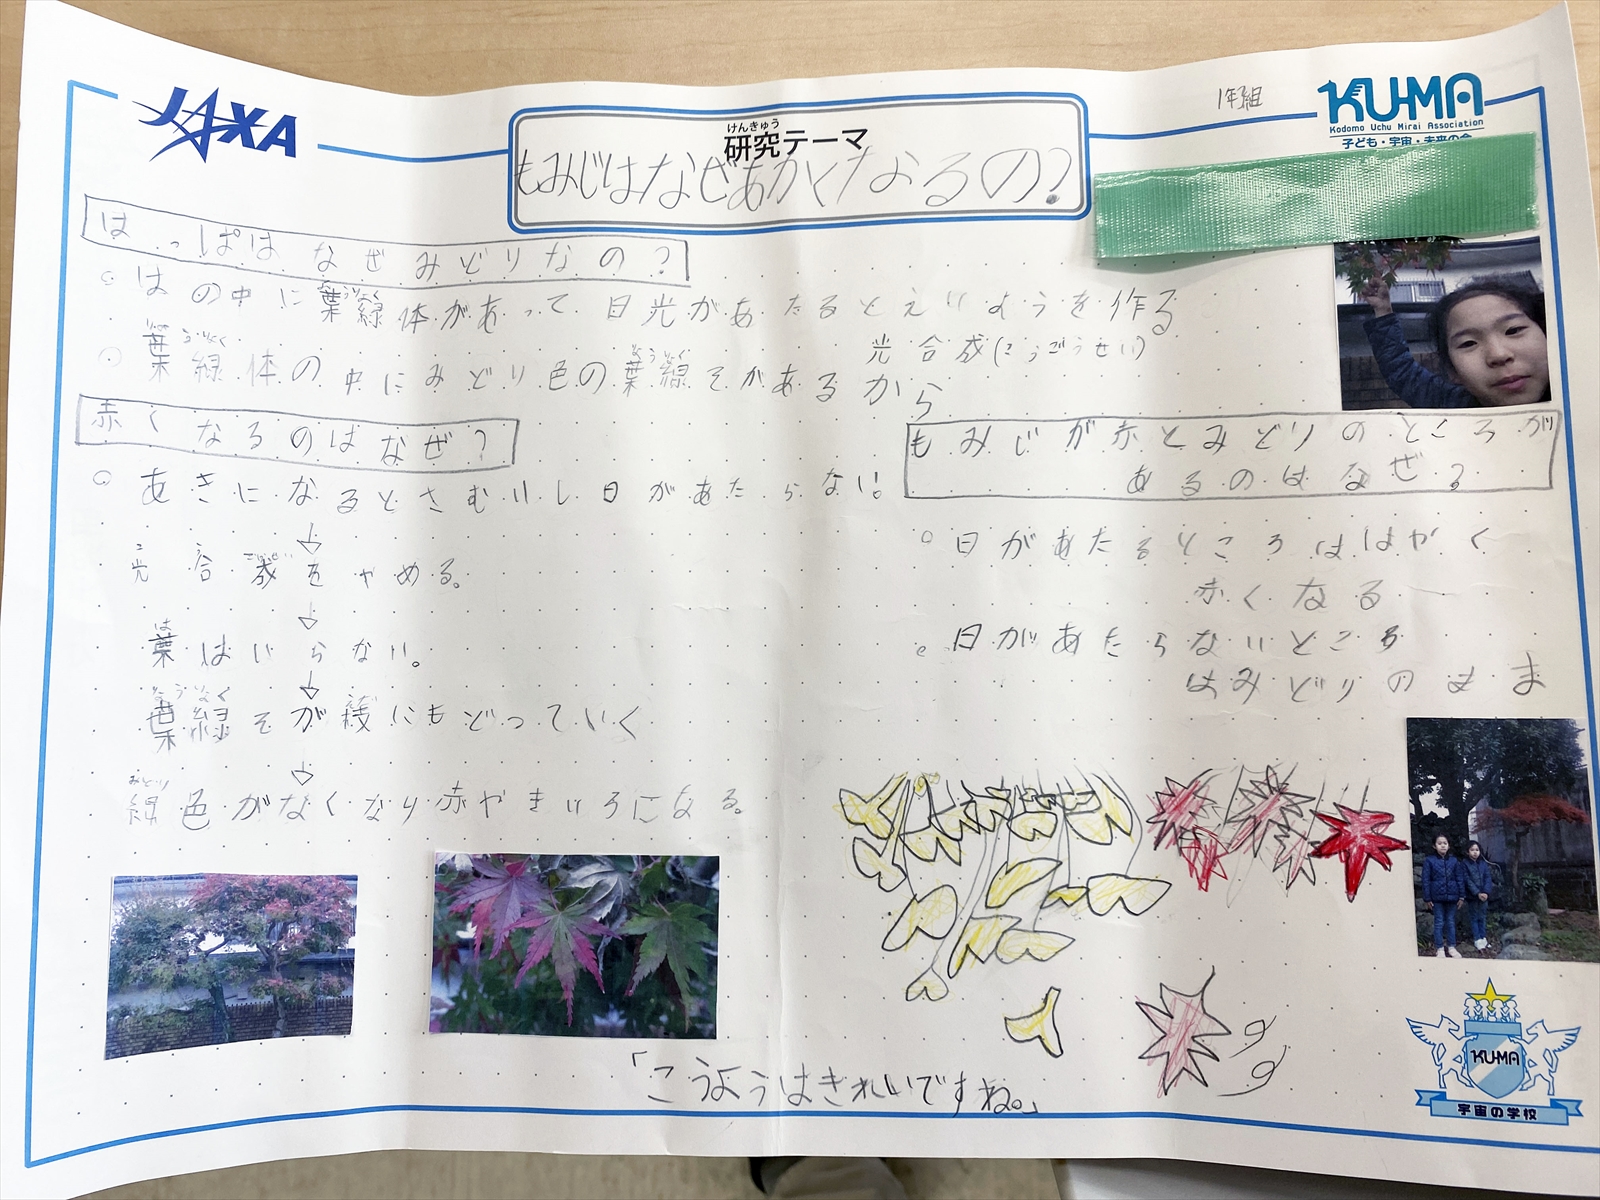 JAXA
けんきゅう
研究テーマ
もみじはなぜあかくなるの?
1年3組
KU-MA
Kodomo Uchu Mirai Association
子ども・宇宙・未来の会
はっぱはなぜみどりなの?
はの中に葉緑体があって日光があたるとえいようを作る
ようりょく
光合成(こうごうせい)
ようりょく
ようりょく
葉緑体の中にみどり色の葉緑そがあるから
赤くなるのはなぜ?
あきになるとさむいし日があたらない。
↓
こう ごうせい
光合成をやめる。
↓
は
葉はいらない。
↓
ようりょく
葉緑そが枝にもどっていく
↓
みどり
緑色がなくなり赤やきいろになる。
もみじが赤とみどりのところが
あるのはなぜ?
日があたるところははやく
赤くなる
日があたらないところ
はみどりのまま
「こうようはきれいですね。」
KU-MA
宇宙の学校